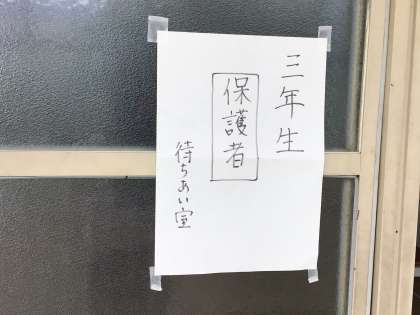 三年生
保護者
待ちあい室